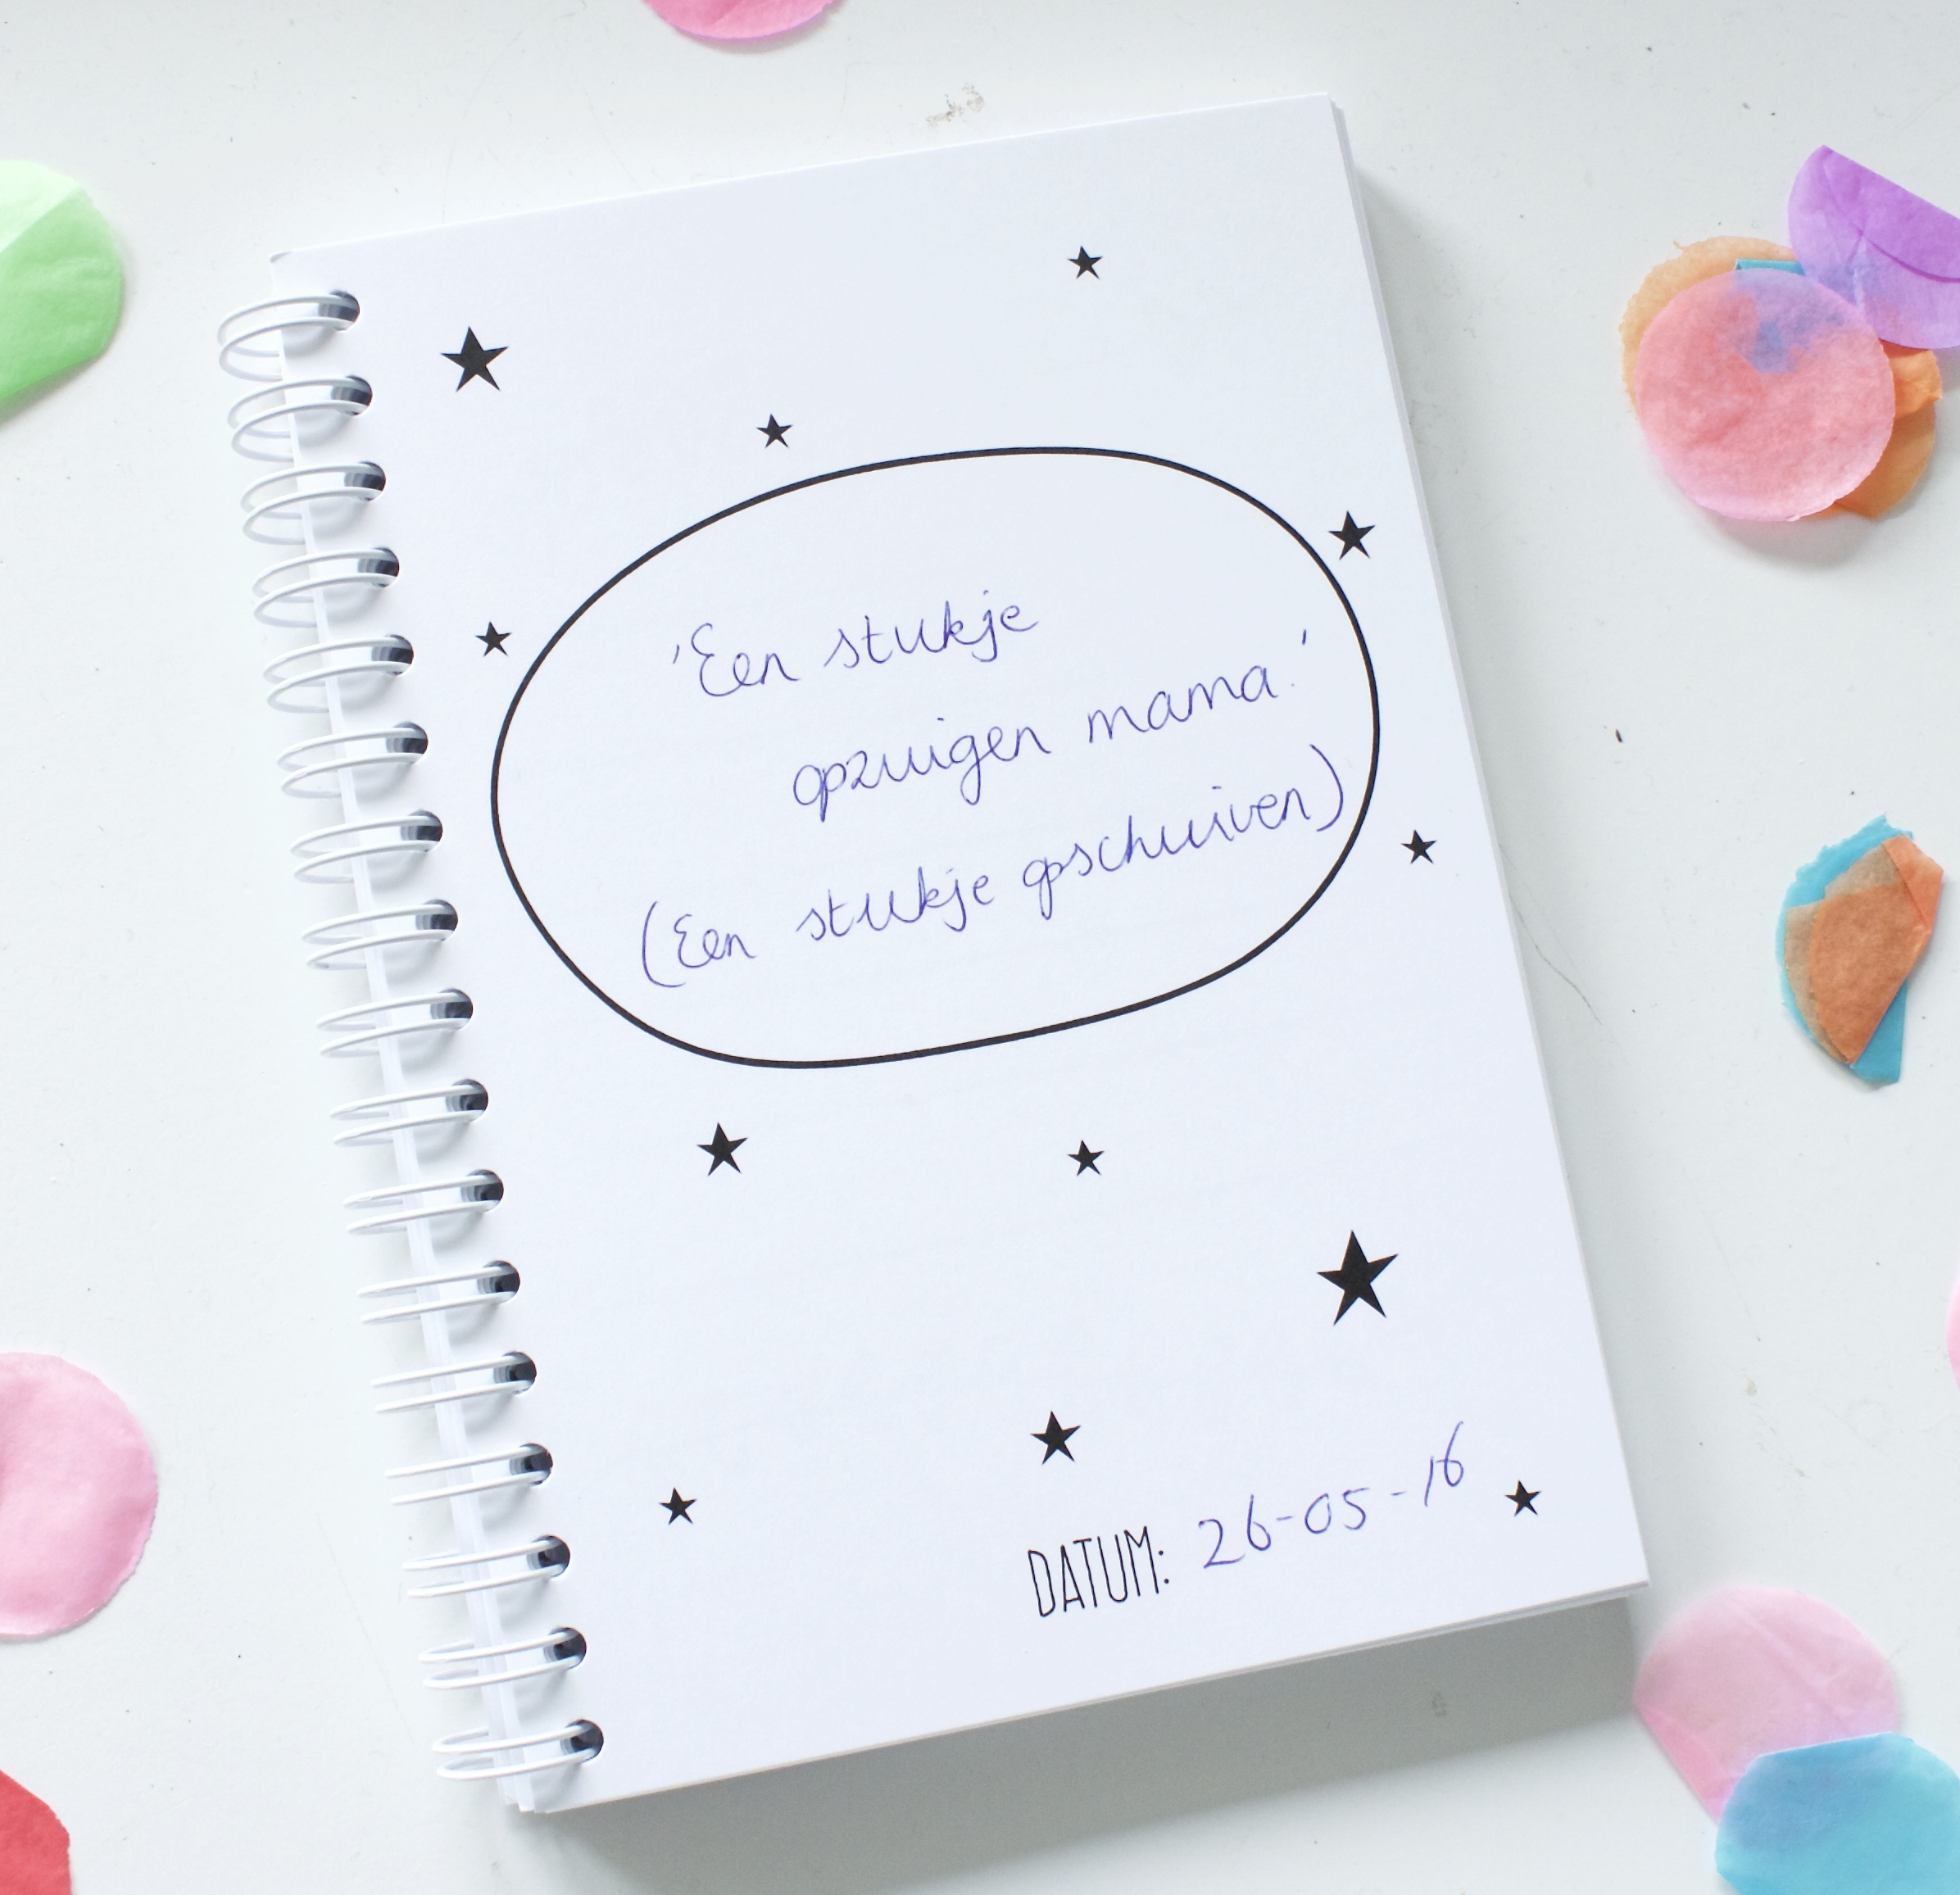 'Een stukje
opzuigen mama.'
(Een stukje opschuiven)
DATUM: 26-05-16